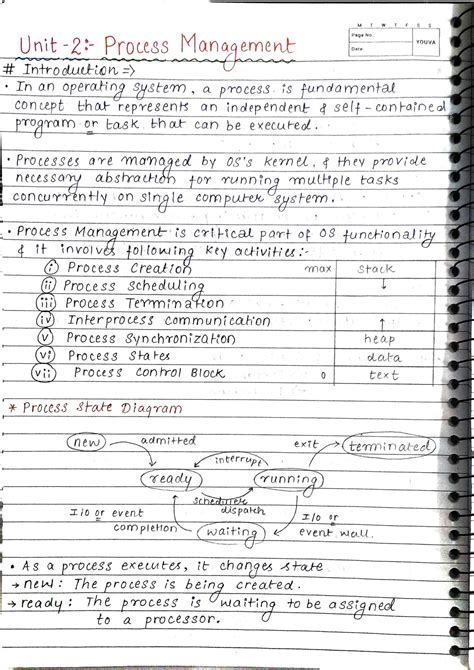 M T W T F S S
Page No.:
Date:
YOUVA
Unit-2:- Process Management
# Introduction =>
• In an operating system, a process is fundamental
concept that represents an independent & self-contained
program or task that can be executed.
• Processes are managed by OS's kernel, & they provide
necessary abstraction for running multiple tasks
concurrently on single computer system.
• Process Management is critical part of OS functionality
& it involves following key activities:-
(i) Process Creation
(ii) Process Scheduling
(iii) Process Termination
(iv) Interprocess communication
(v) Process Synchronization
(vi) Process States
(vii) Process Control Block
max
stack
↓
↑
heap
data
0
text
* Process State Diagram
new
admitted
exit
terminated
interrupt
ready
running
scheduler
dispatch
I/O or event
completion
waiting
I/O or
event wall.
• As a process executes, it changes state
→ new: The process is being created.
→ ready: The process is waiting to be assigned
to a processor.